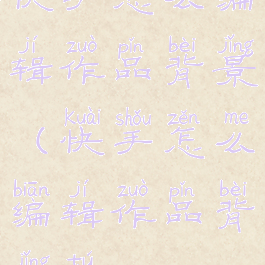 jí zuò pǐn bèi jǐng
辑作品背景
kuài shǒu zěn me
（快手怎么
biān jí zuò pǐn bèi
编辑作品背